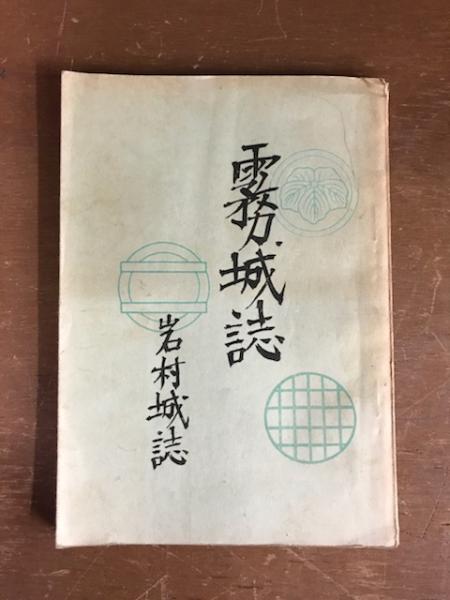 霧城誌
岩村城誌